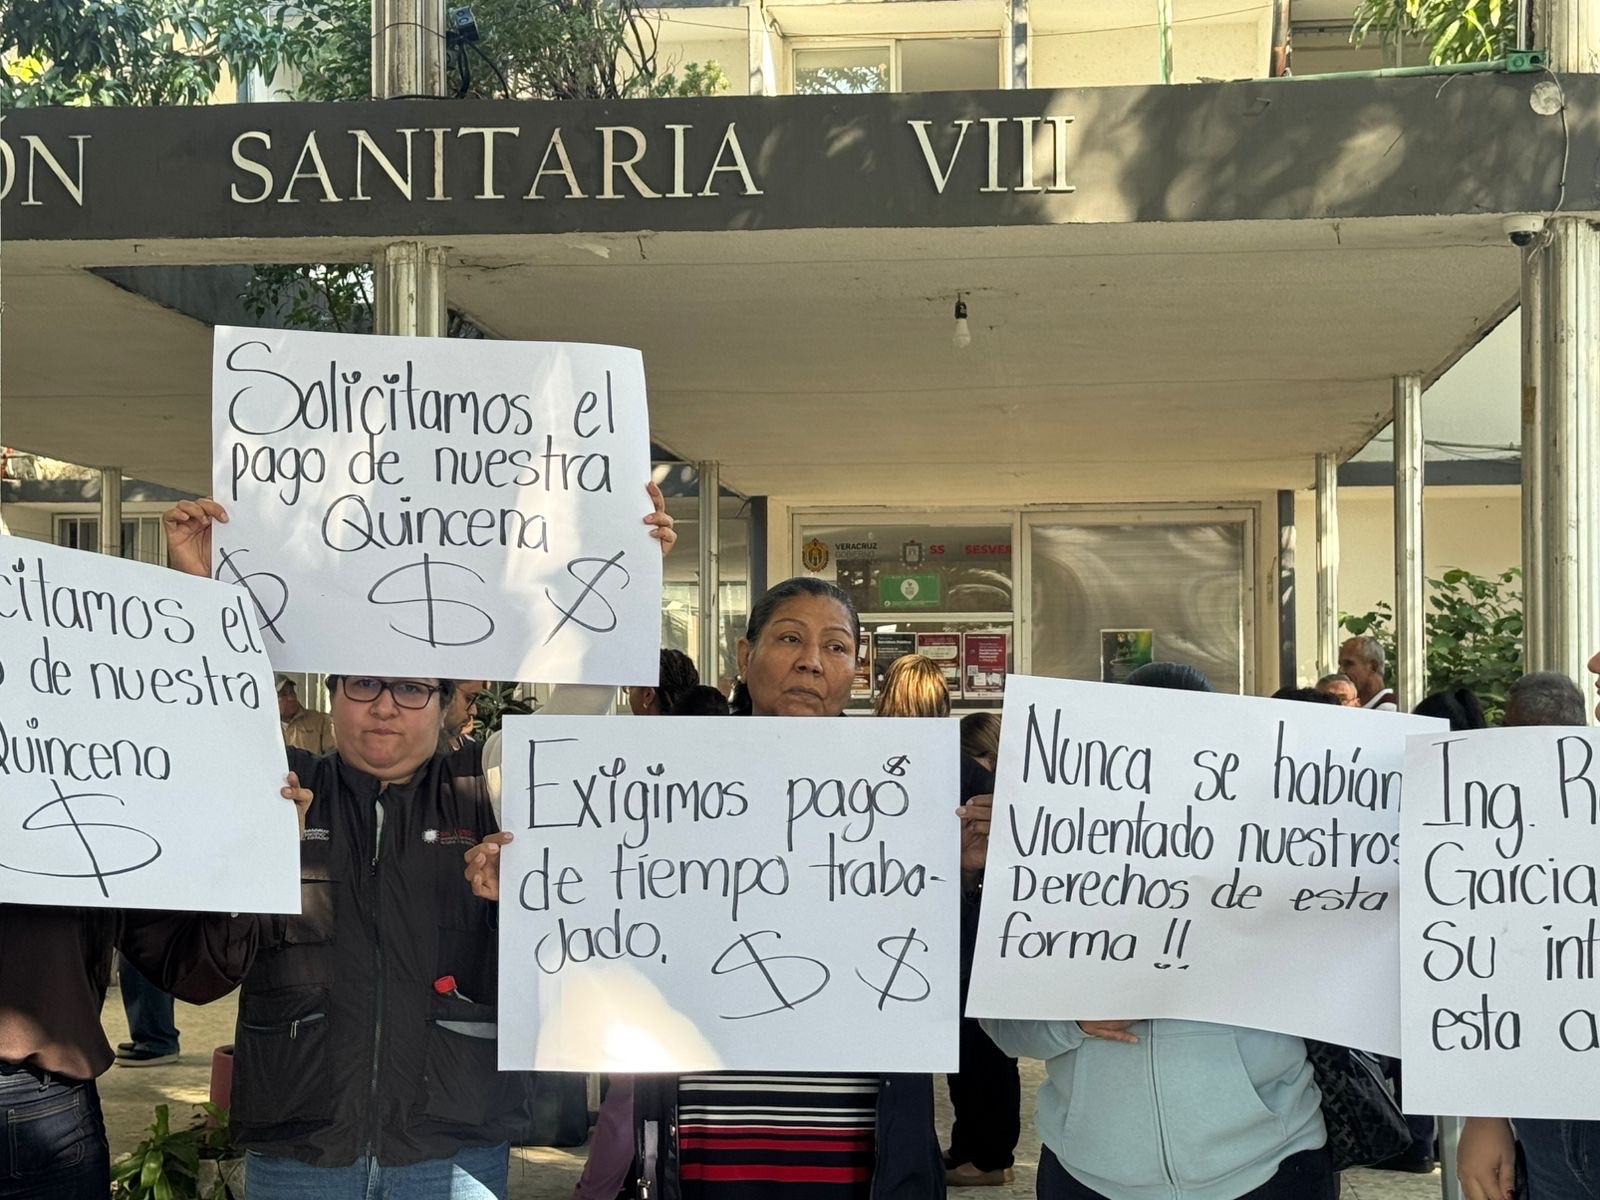 ÓN SANITARIA VIII
Solicitamos el
pago de nuestra
Quincena
$ $ $
citamos el
de nuestra
Quincena
$
VERACRUZ
GOBIERNO
SS
SESVER
Exigimos pago $
de tiempo traba-
jado. $ $
Nunca se habían
Violentado nuestros
Derechos de esta
forma !!
Ing. R
Garcia
Su int
esta a